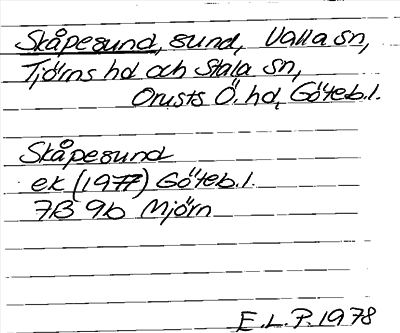 Skåpesund, sund, Valla sn,
Tjörns hd och Stala sn,
Orusts Ö. hd, Göteb.l.
Skåpesund
ek (1977) Göteb.l.
7B 9b Mjörn
E.L.P. 1978